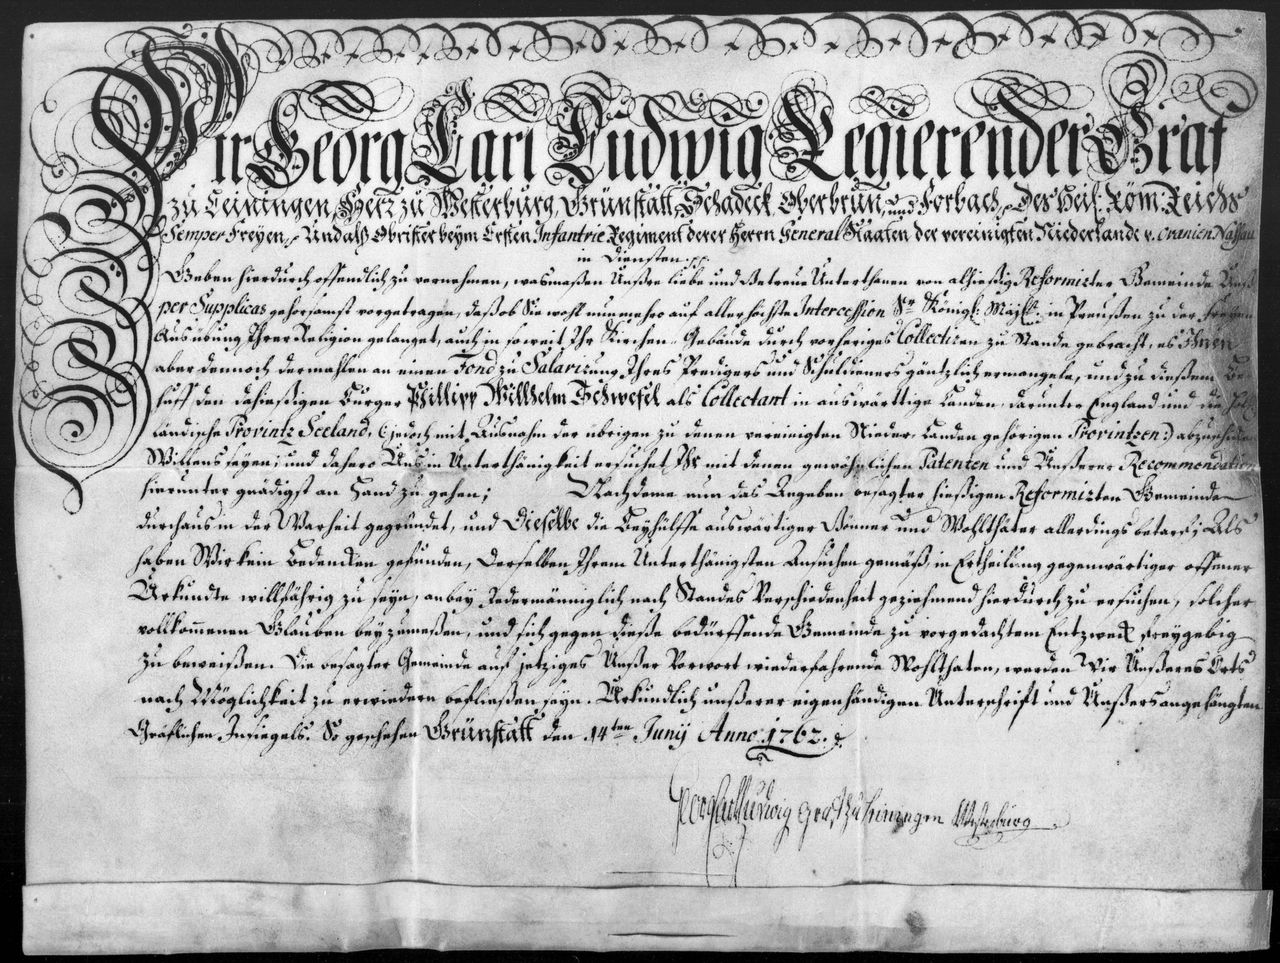 Wir Georg Carl Ludwig Regierender Graf
zu Leiningen, Herr zu Westerburg, Grünstatt, Schadeck Oberbrun, und Forbach, des Heil: Röm: Reichs
Semper Freyen, Undalß Obrister beym Ersten Infantrie Regiment derer Herrn General Staaten der vereinigten Niederlande v. Oranien Nassau
in Diensten p.p.
Geben hierdurch offendlich zu vernehmen, wasmaßen Unßre liebe und Getreue Unterthanen von alhiesig Reformirter Gemeinde Unß
per Supplicas gehorsamst vorgetragen, daß ob Sie wohl nunmehro auf allerhöchste Intercession Sr. Königl: Majst: in Preußen zu der freyen
Ausübung Ihrer Religion gelanget, auch in soweit Ihr Kirchen-Gebäude durch vorheriges Collectiren zu Stande gebracht, es Ihnen
aber dennoch dermahlen an einen Fond zu Salarirung Ihres Predigers und Schuldieners gäntzlich ermangele, und zu dießem Be-
huff den dahießigen Burger Phillipp Willhelm Schwefel als Collectant in auswärttige Landen, darunter England und die Hol-
ländische Provintz Seeland, (: jedoch mit Ausnahm der übrigen zu denen vereinigten Nieder-Landen gehörigen Provintzen:) abzuschicken
Willens seyen; und dahero Uns in Unterthänigkeit ersuchet, Ihr mit denen gewöhnlichen Patenten und Unßerer Recommendation
hierunter gnädigst an Hand zu gehen; Nachdeme nun das Angeben besagter hießigen Reformirten Gemeinde
durchaus in der Warheit gegründet, und Dieselbe die Beyhülffe auswärtiger Gönner und Wohlthäter allerdings bedarf; Als
haben Wir kein Bedencken gefunden, Derselben Ihrem Unterthänigsten Ansuchen gemäß, in Ertheilung gegenwärtiger offener
Urkundte willfährig zu seyn, anbey Jedermänniglich nach Standes Verschiedenheit geziehmend hierdurch zu ersuchen, solcher
vollkommenen Glauben beyzumeßen, und sich gegen dieße bedürffende Gemeinde zu vorgedachtem Entzweck freygebig
zu beweißen. Die besagter Gemeinde auf jetziges Unßer Vorwort wiederfahrende Wohlthaten, werden Wir Unßeres Orts
nach Möglichkeit zu erwiedern beflißen seyn. Urkundlich unßerer eigenhändigen Unterschrift und Unßers angehängten
Gräflichen Insiegels. So geschehen Grünstatt den 14ten Junij Anno 1762.
Georg Carl Ludwig Graf zu Leiningen Westerburg